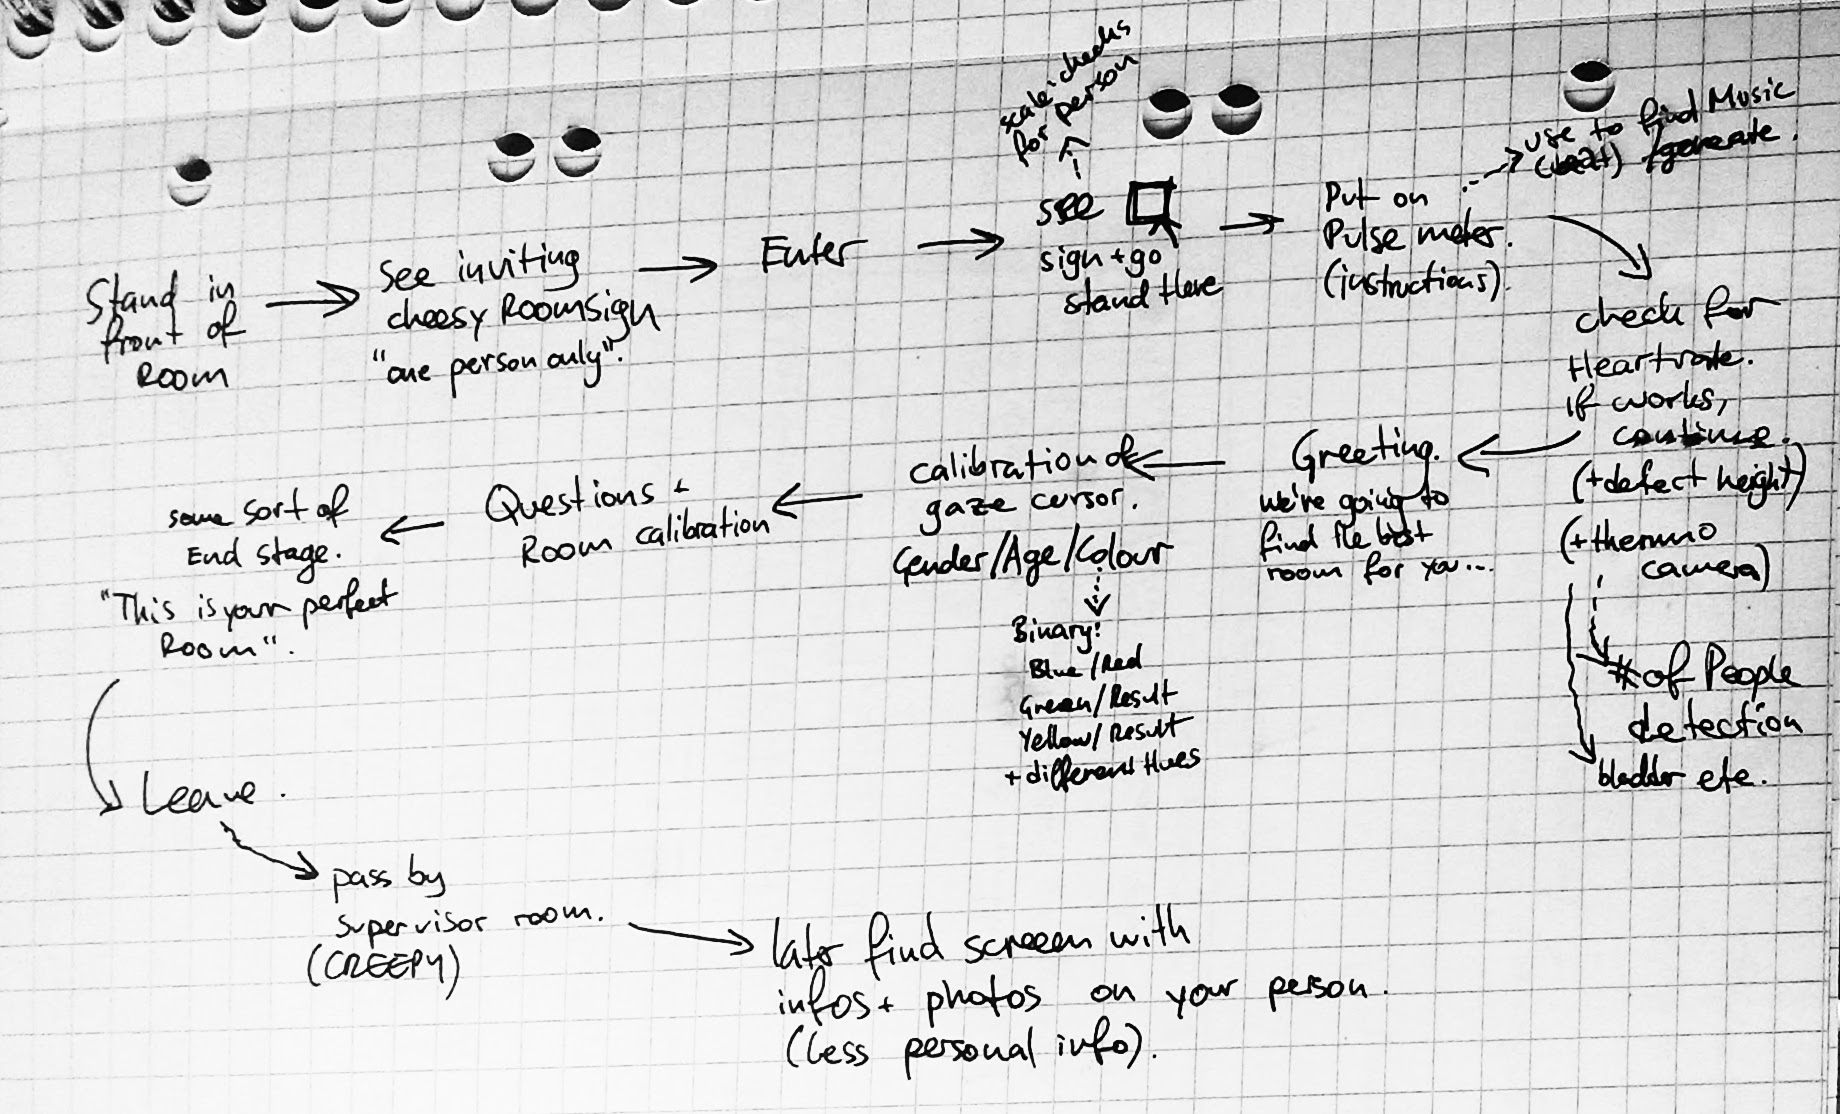 Stand in
front of
Room
See inviting
cheesy Roomsign
"one person only".
Enter
scale: checks
for person
see
sign + go
stand Here
Put on
Pulse meter.
(instructions).
use to find Music
(beat) / generate.
check for
Heartrate.
if works,
continue.
(+ detect height)
(+ thermo
camera)
# of People
detection
bladder etc.
Greeting.
we're going to
find the best
room for you...
calibration of
gaze cursor.
Gender/Age/Colour
Binary:
Blue/Red
Green/Result
Yellow/Result
+ different Hues
Questions +
Room calibration
some sort of
End stage.
"This is your perfect
Room".
Leave.
pass by
supervisor room.
(CREEPY)
later find screeen with
infos + photos on your person.
(less personal info).